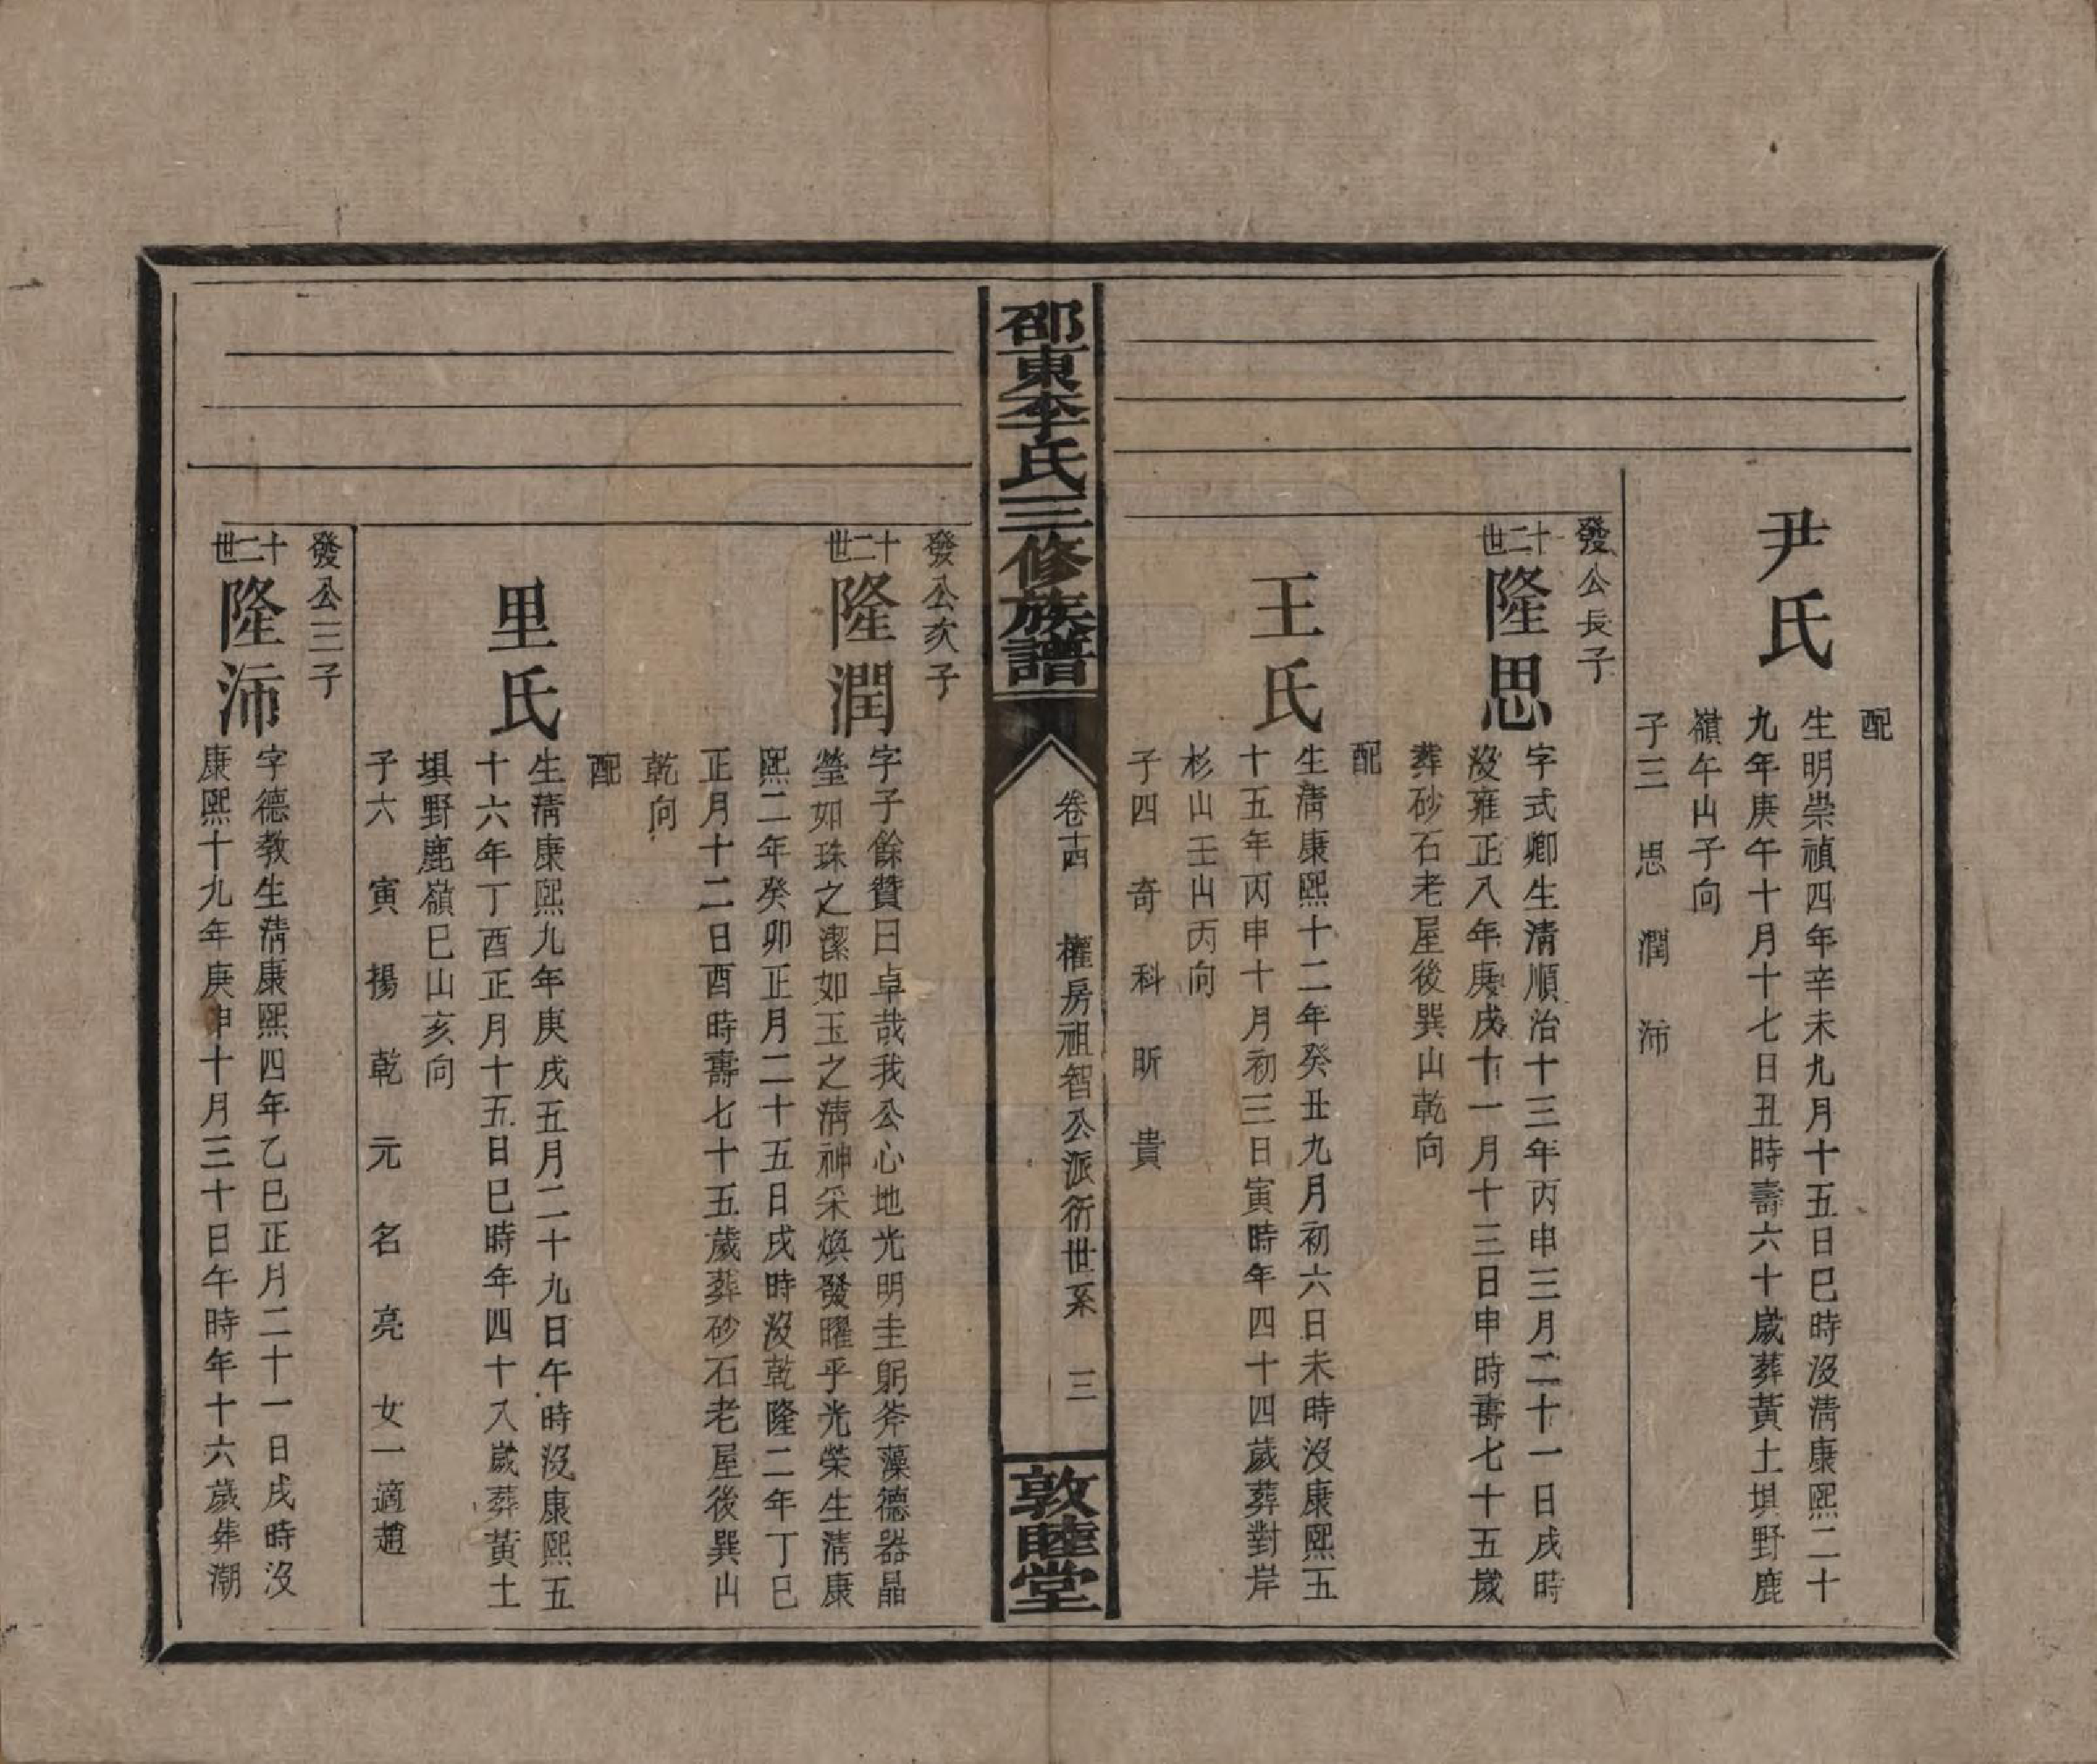 配
尹氏
生明崇禎四年辛未九月十五日巳時沒清康熙二十
九年庚午十月十七日丑時壽六十歲葬黃土塤野鹿
嶺午山子向
子三　思　潤　沛
發公長子
十二世
隆思
字式卿生清順治十三年丙申三月二十一日戌時
沒雍正八年庚戌十一月十三日申時壽七十五歲
葬砂石老屋後巽山乾向
配
王氏
生清康熙十二年癸丑九月初六日未時沒康熙五
十五年丙申十月初三日寅時年四十四歲葬對岸
杉山壬山丙向
子四　奇　科　昕　貴
邵東李氏三修族譜
卷十四　權房祖智公派衍世系　三
敦睦堂
發公次子
十二世
隆潤
字子餘贊曰卓哉我公心地光明圭躬斧藻德器晶
瑩如珠之潔如玉之清神采煥發曜乎光榮生清康
熙二年癸卯正月二十五日戌時沒乾隆二年丁巳
正月十二日酉時壽七十五歲葬砂石老屋後巽山
乾向
配
里氏
生清康熙九年庚戌五月二十九日午時沒康熙五
十六年丁酉正月十五日巳時年四十八歲葬黃土
塤野鹿嶺巳山亥向
子六　寅　揚　乾　元　名　亮　女一適趙
發公三子
十二世
隆沛
字德教生清康熙四年乙巳正月二十一日戌時沒
康熙十九年庚申十月三十日午時年十六歲葬潮